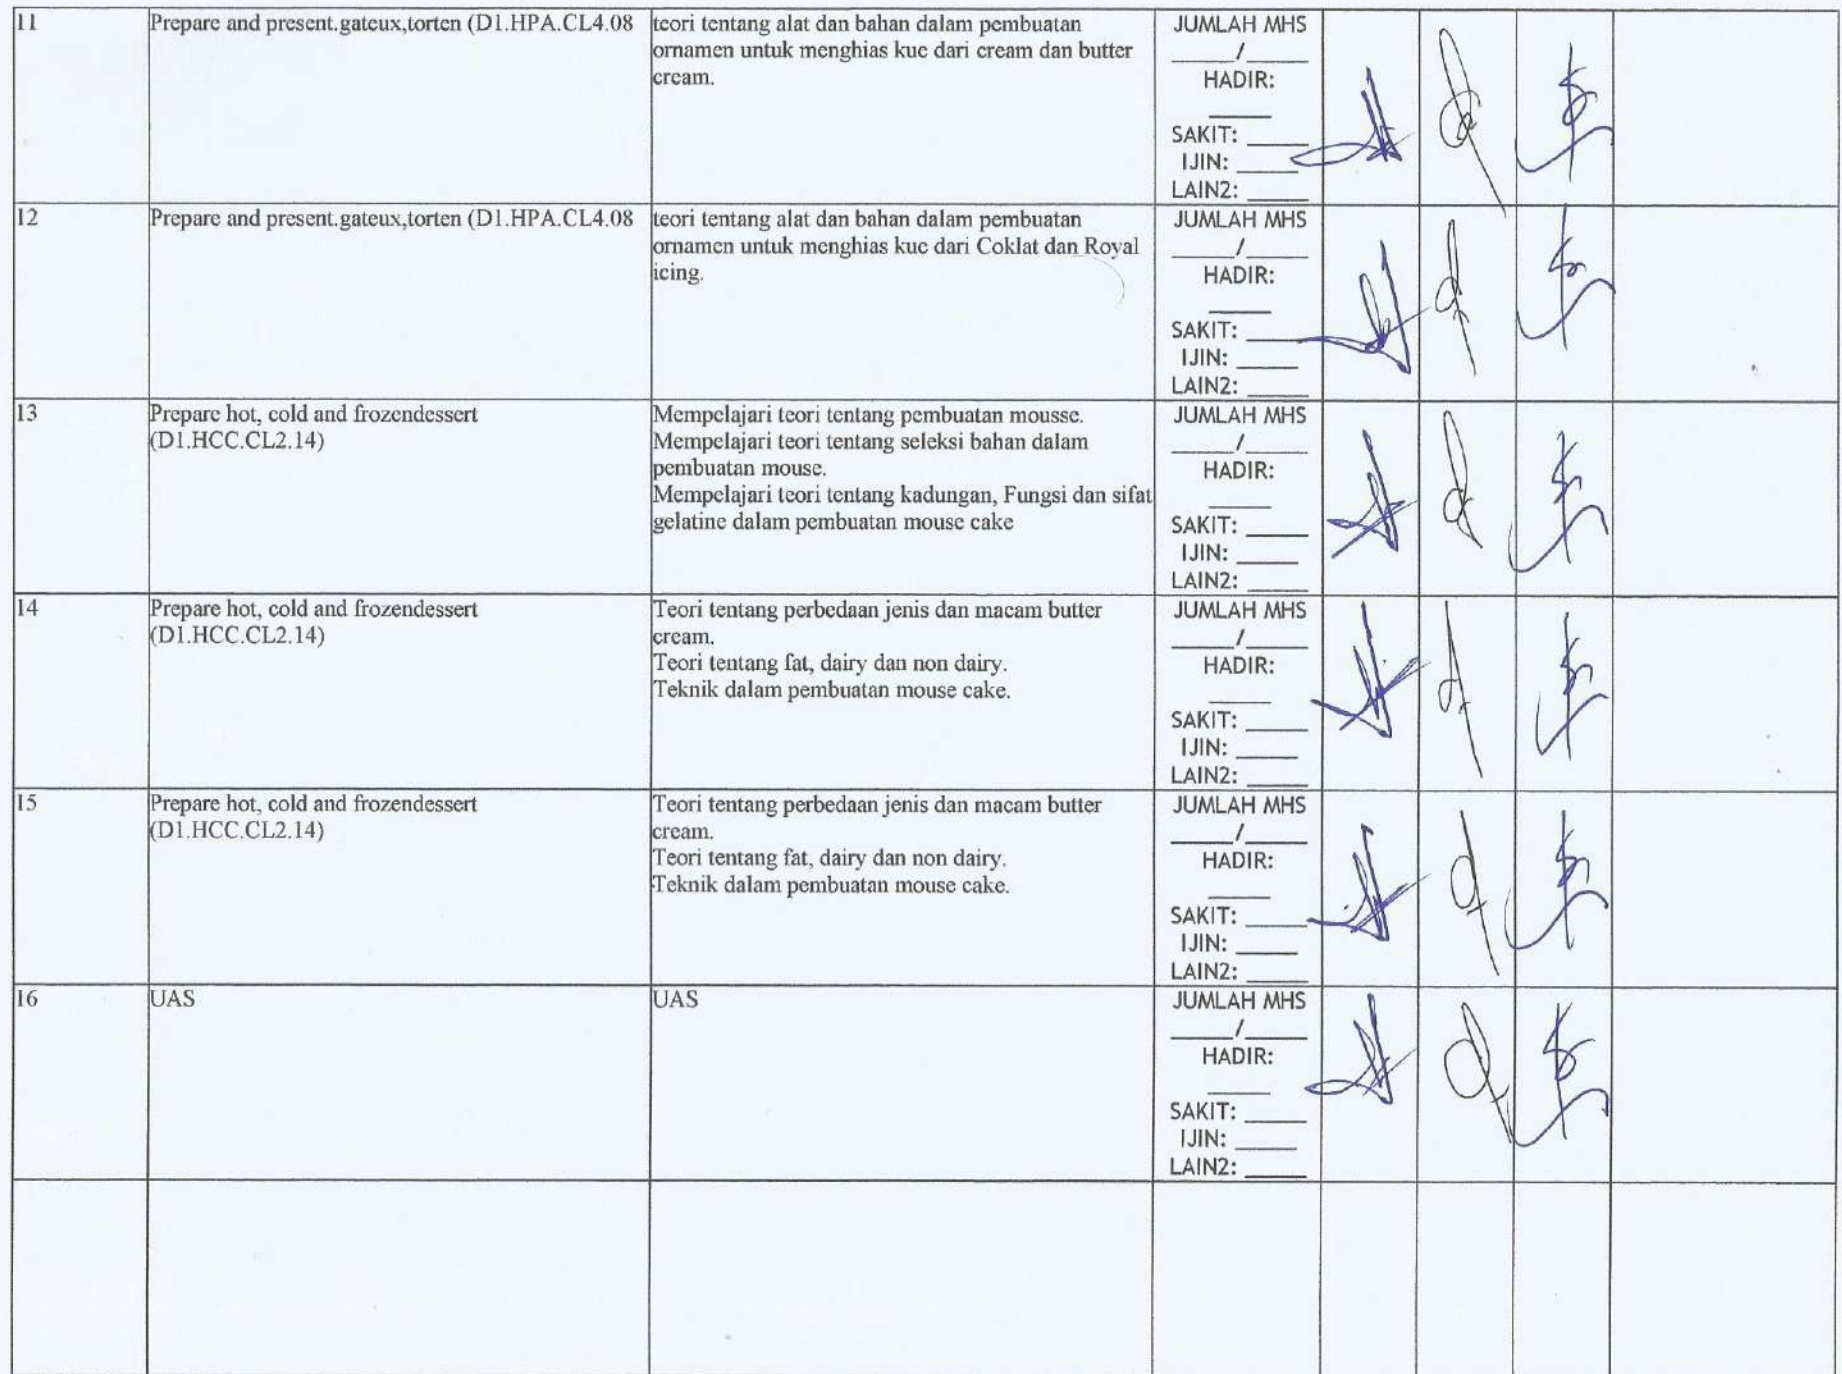 11
Prepare and present.gateux,torten (D1.HPA.CL4.08
teori tentang alat dan bahan dalam pembuatan
ornamen untuk menghias kue dari cream dan butter
cream.
JUMLAH MHS
____/____
HADIR:
____
SAKIT: ____
IJIN: ____
LAIN2: ____
12
Prepare and present.gateux,torten (D1.HPA.CL4.08
teori tentang alat dan bahan dalam pembuatan
ornamen untuk menghias kue dari Coklat dan Royal
icing.
JUMLAH MHS
____/____
HADIR:
____
SAKIT: ____
IJIN: ____
LAIN2: ____
13
Prepare hot, cold and frozendessert
(D1.HCC.CL2.14)
Mempelajari teori tentang pembuatan mousse.
Mempelajari teori tentang seleksi bahan dalam
pembuatan mouse.
Mempelajari teori tentang kadungan, Fungsi dan sifat
gelatine dalam pembuatan mouse cake
JUMLAH MHS
____/____
HADIR:
____
SAKIT: ____
IJIN: ____
LAIN2: ____
14
Prepare hot, cold and frozendessert
(D1.HCC.CL2.14)
Teori tentang perbedaan jenis dan macam butter
cream.
Teori tentang fat, dairy dan non dairy.
Teknik dalam pembuatan mouse cake.
JUMLAH MHS
____/____
HADIR:
____
SAKIT: ____
IJIN: ____
LAIN2: ____
15
Prepare hot, cold and frozendessert
(D1.HCC.CL2.14)
Teori tentang perbedaan jenis dan macam butter
cream.
Teori tentang fat, dairy dan non dairy.
Teknik dalam pembuatan mouse cake.
JUMLAH MHS
____/____
HADIR:
____
SAKIT: ____
IJIN: ____
LAIN2: ____
16
UAS
UAS
JUMLAH MHS
____/____
HADIR:
____
SAKIT: ____
IJIN: ____
LAIN2: ____